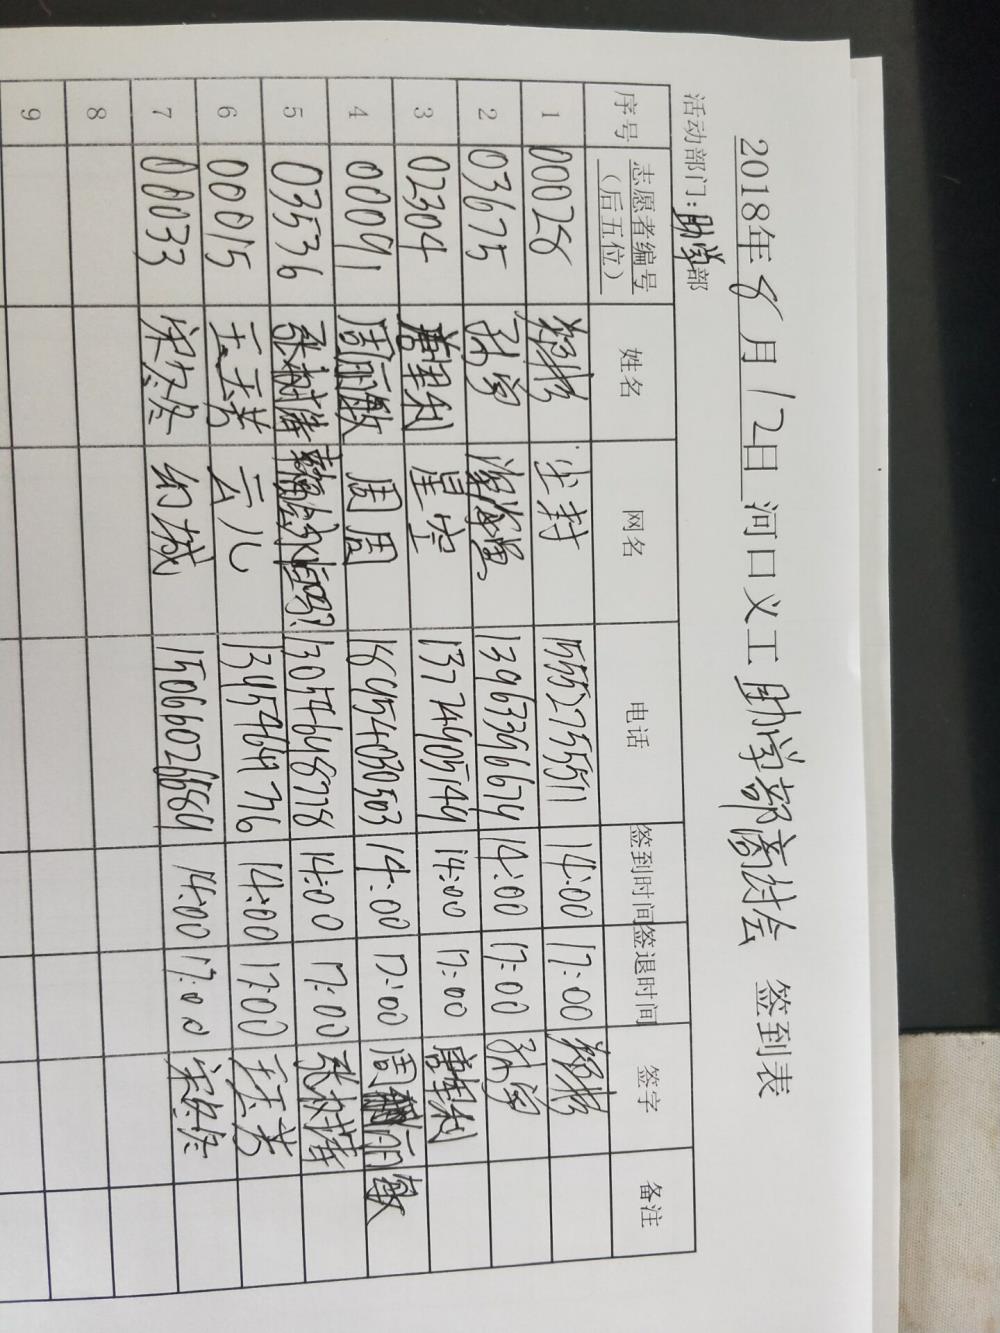 2018年8月12日 河口义工 助学部商讨会 签到表
活动部门：助学部
序号 志愿者编号（后五位） 姓名 网名 电话 签到时间 签退时间 签字 备注
1 00028 尘封 14:00 17:00
2 03675 孙实 13963396674 14:00 17:00 孙实
3 02304 星空 13774905749 14:00 17:00
4 00091 周丽敏 周周 18954030503 14:00 17:00 周丽敏
5 03536 张树萍 13054648778 14:00 17:00 张树萍
6 00015 王云芳 云儿 14:00 17:00 王云芳
7 00033 宋冬冬 幻城 15066026684 14:00 17:00 宋冬冬
8
9